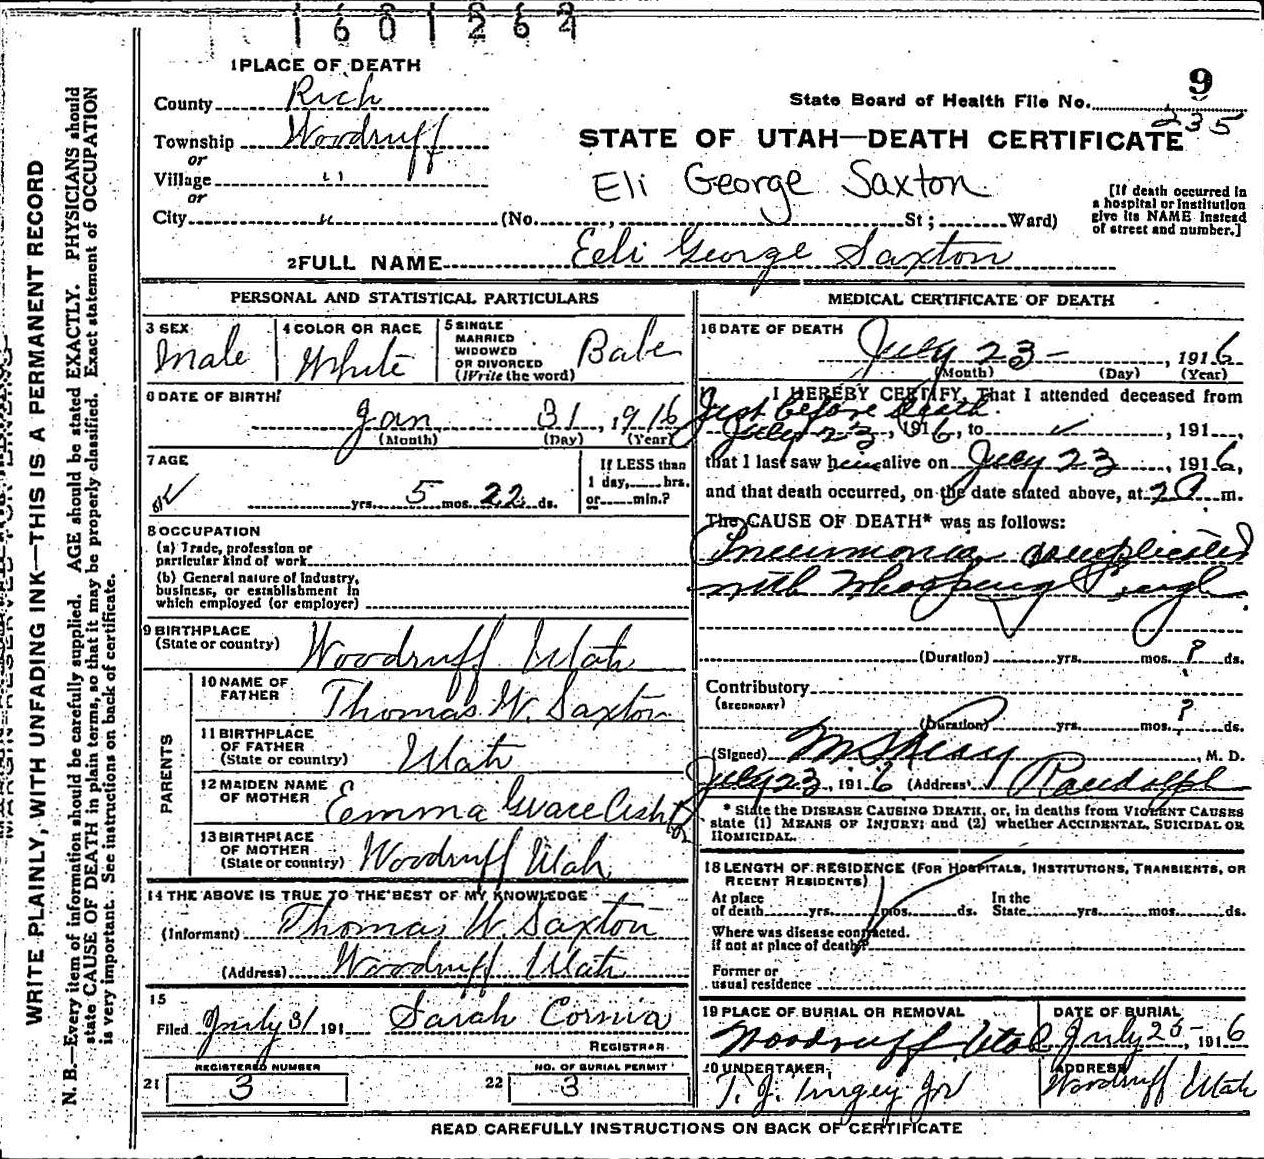 1601262
1 PLACE OF DEATH
County Rich
Township Woodruff
or
Village "
or
City " (No. , St; Ward)
9
State Board of Health File No. 235
STATE OF UTAH—DEATH CERTIFICATE
Eli George Saxton
[If death occurred in
a hospital or institution
give its NAME instead
of street and number.]
2 FULL NAME Eeli George Saxton
PERSONAL AND STATISTICAL PARTICULARS
3 SEX Male
4 COLOR OR RACE White
5 SINGLE
MARRIED
WIDOWED
OR DIVORCED
(Write the word) Babe
6 DATE OF BIRTH
Jan 31, 1916
(Month) (Day) (Year)
7 AGE
yrs. 5 mos. 22 ds.
If LESS than
1 day, hrs.
or min.?
8 OCCUPATION
(a) Trade, profession or
particular kind of work
(b) General nature of industry,
business, or establishment in
which employed (or employer)
9 BIRTHPLACE
(State or country) Woodruff Utah
PARENTS
10 NAME OF
FATHER Thomas W. Saxton
11 BIRTHPLACE
OF FATHER
(State or country) Utah
12 MAIDEN NAME
OF MOTHER Emma Grace
13 BIRTHPLACE
OF MOTHER
(State or country) Woodruff Utah
14 THE ABOVE IS TRUE TO THE BEST OF MY KNOWLEDGE
(Informant) Thomas W. Saxton
(Address) Woodruff Utah
15
Filed July 31 191 Sarah Cornia
REGISTRAR
REGISTERED NUMBER
21 3
NO. OF BURIAL PERMIT
22 3
MEDICAL CERTIFICATE OF DEATH
16 DATE OF DEATH
July 23 - , 1916
(Month) (Day) (Year)
I HEREBY CERTIFY, That I attended deceased from
Just before death.
July 23, 1916, to ✓ , 191 ,
that I last saw him alive on July 23, 1916,
and that death occurred, on the date stated above, at 2 m.
The CAUSE OF DEATH* was as follows:
Pneumonia complicated
with Whooping Cough
(Duration) yrs. mos. ? ds.
Contributory
(SECONDARY)
(Duration) yrs. mos. ? ds.
(Signed) , M. D.
July 23, 1916 (Address) Randolph
* State the DISEASE CAUSING DEATH, or, in deaths from VIOLENT CAUSES
state (1) MEANS OF INJURY; and (2) whether ACCIDENTAL, SUICIDAL OR
HOMICIDAL.
18 LENGTH OF RESIDENCE (FOR HOSPITALS, INSTITUTIONS, TRANSIENTS, OR
RECENT RESIDENTS)
At place
of death yrs. mos. ds.
In the
State yrs. mos. ds.
Where was disease contracted.
if not at place of death?
Former or
usual residence
19 PLACE OF BURIAL OR REMOVAL
Woodruff Utah
DATE OF BURIAL
July 25 - , 1916
20 UNDERTAKER
T. J. Tingey Jr
ADDRESS
Woodruff Utah
READ CAREFULLY INSTRUCTIONS ON BACK OF CERTIFICATE
WRITE PLAINLY, WITH UNFADING INK—THIS IS A PERMANENT RECORD
N. B.—Every item of information should be carefully supplied. AGE should be stated EXACTLY. PHYSICIANS should
state CAUSE OF DEATH in plain terms, so that it may be properly classified. Exact statement of OCCUPATION
is very important. See instructions on back of certificate.